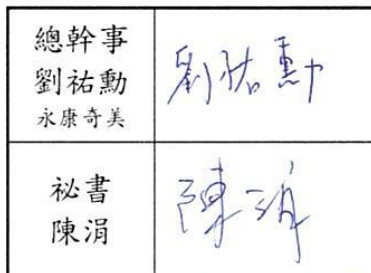 總幹事
劉祐勳
永康奇美
劉祐勳
祕書
陳涓
陳涓